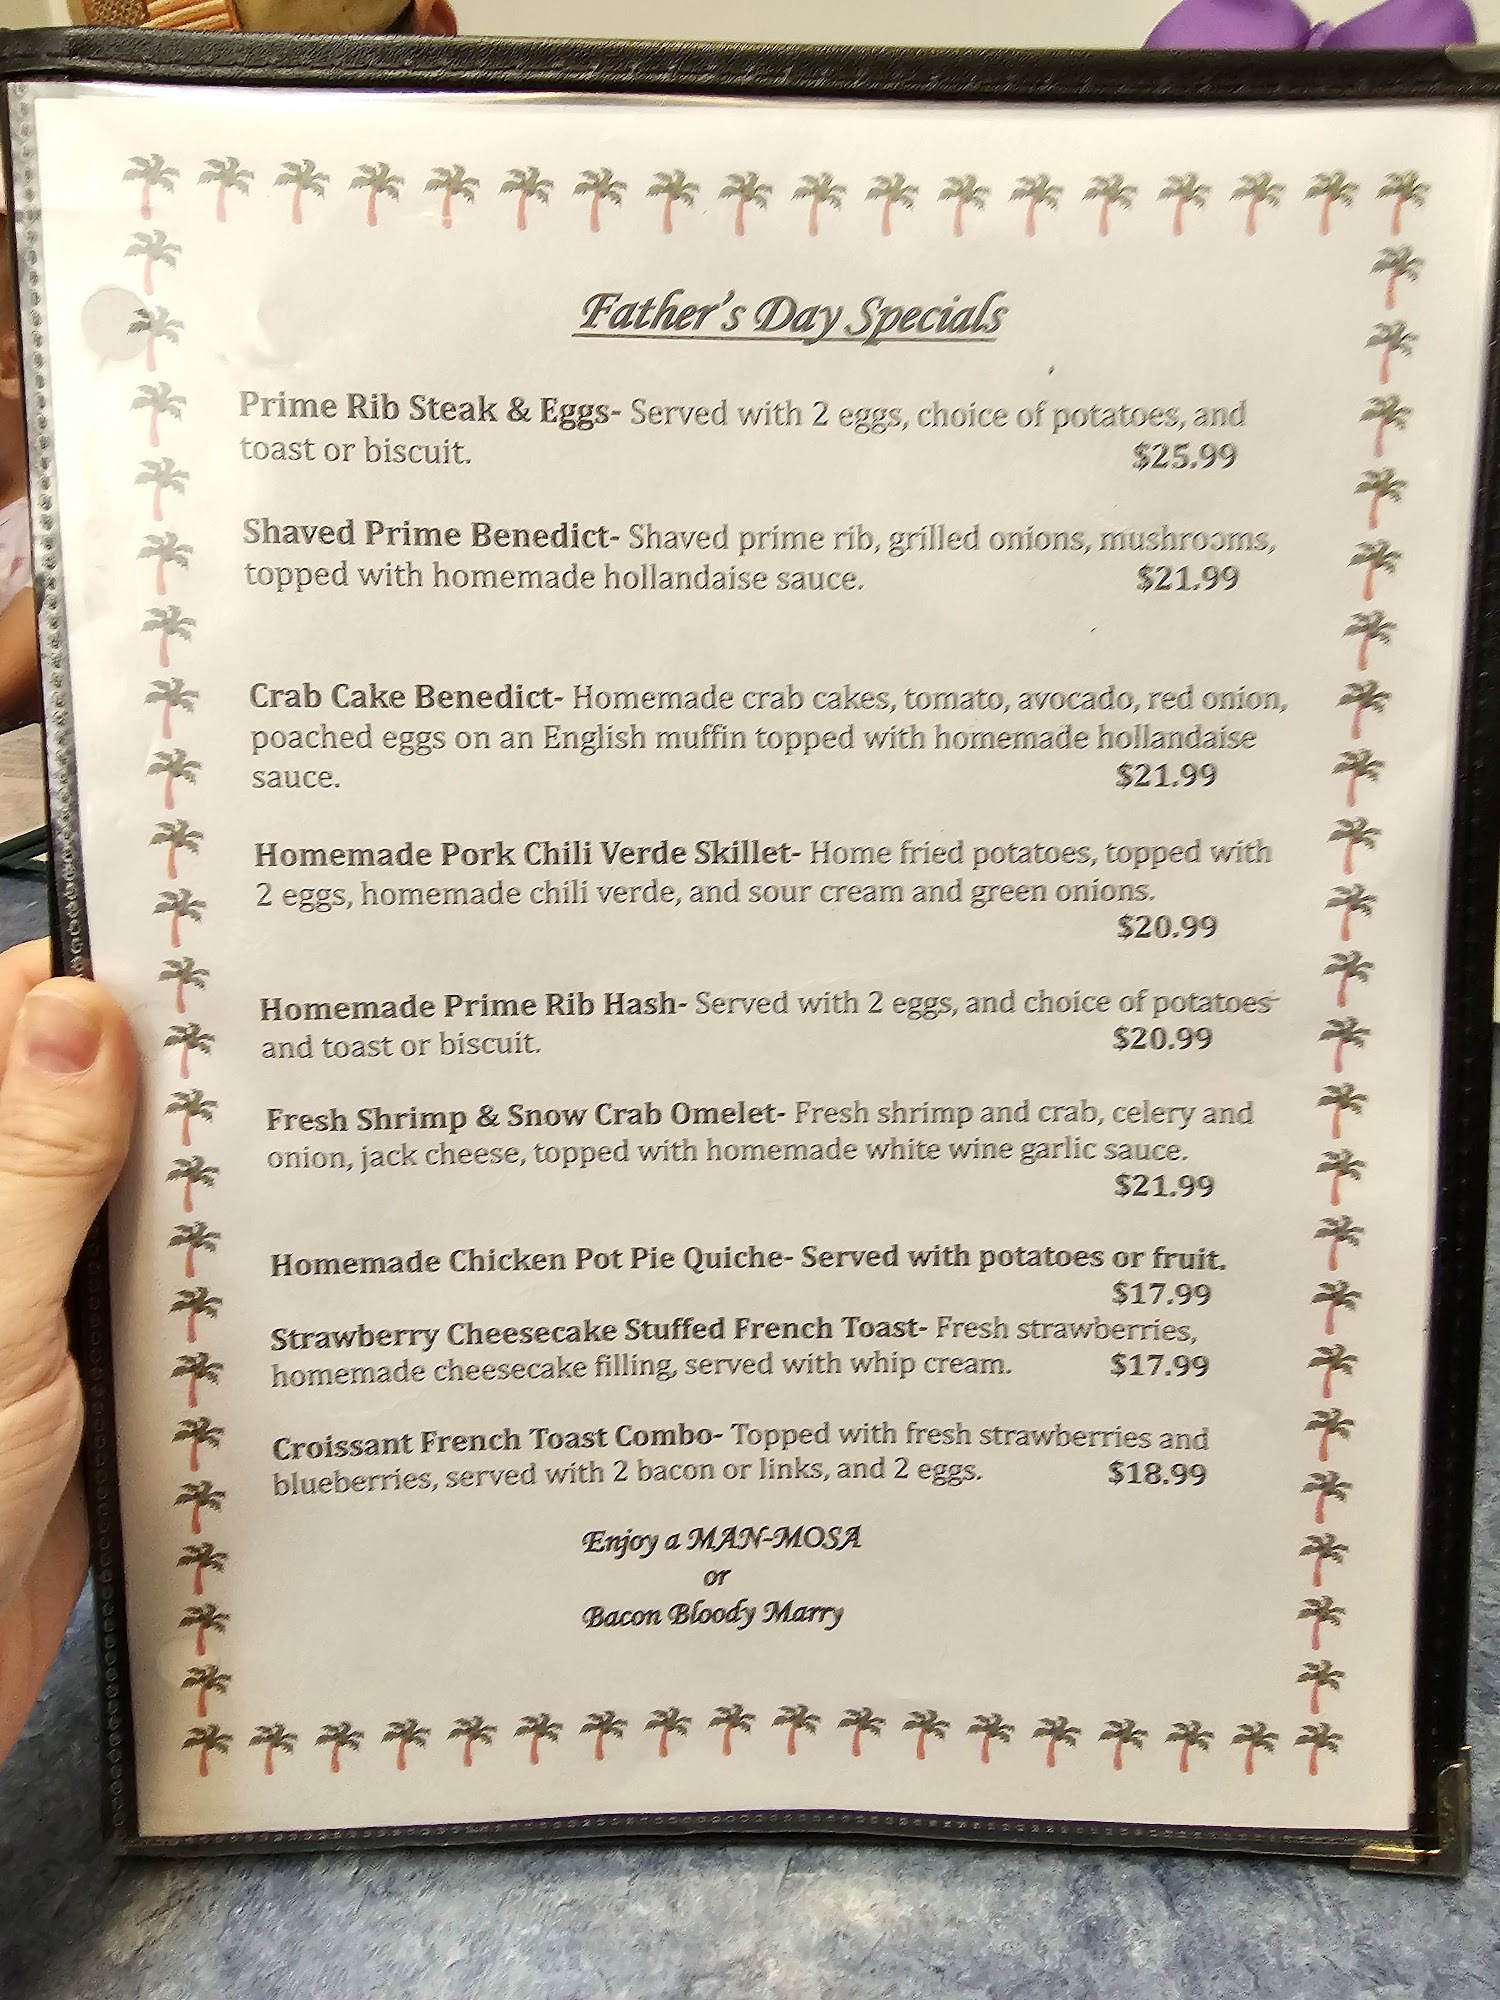 Father's Day Specials
Prime Rib Steak & Eggs- Served with 2 eggs, choice of potatoes, and
toast or biscuit. $25.99
Shaved Prime Benedict- Shaved prime rib, grilled onions, mushrooms,
topped with homemade hollandaise sauce. $21.99
Crab Cake Benedict- Homemade crab cakes, tomato, avocado, red onion,
poached eggs on an English muffin topped with homemade hollandaise
sauce. $21.99
Homemade Pork Chili Verde Skillet- Home fried potatoes, topped with
2 eggs, homemade chili verde, and sour cream and green onions.
$20.99
Homemade Prime Rib Hash- Served with 2 eggs, and choice of potatoes
and toast or biscuit. $20.99
Fresh Shrimp & Snow Crab Omelet- Fresh shrimp and crab, celery and
onion, jack cheese, topped with homemade white wine garlic sauce.
$21.99
Homemade Chicken Pot Pie Quiche- Served with potatoes or fruit.
$17.99
Strawberry Cheesecake Stuffed French Toast- Fresh strawberries,
homemade cheesecake filling, served with whip cream. $17.99
Croissant French Toast Combo- Topped with fresh strawberries and
blueberries, served with 2 bacon or links, and 2 eggs. $18.99
Enjoy a MAN-MOSA
or
Bacon Bloody Marry